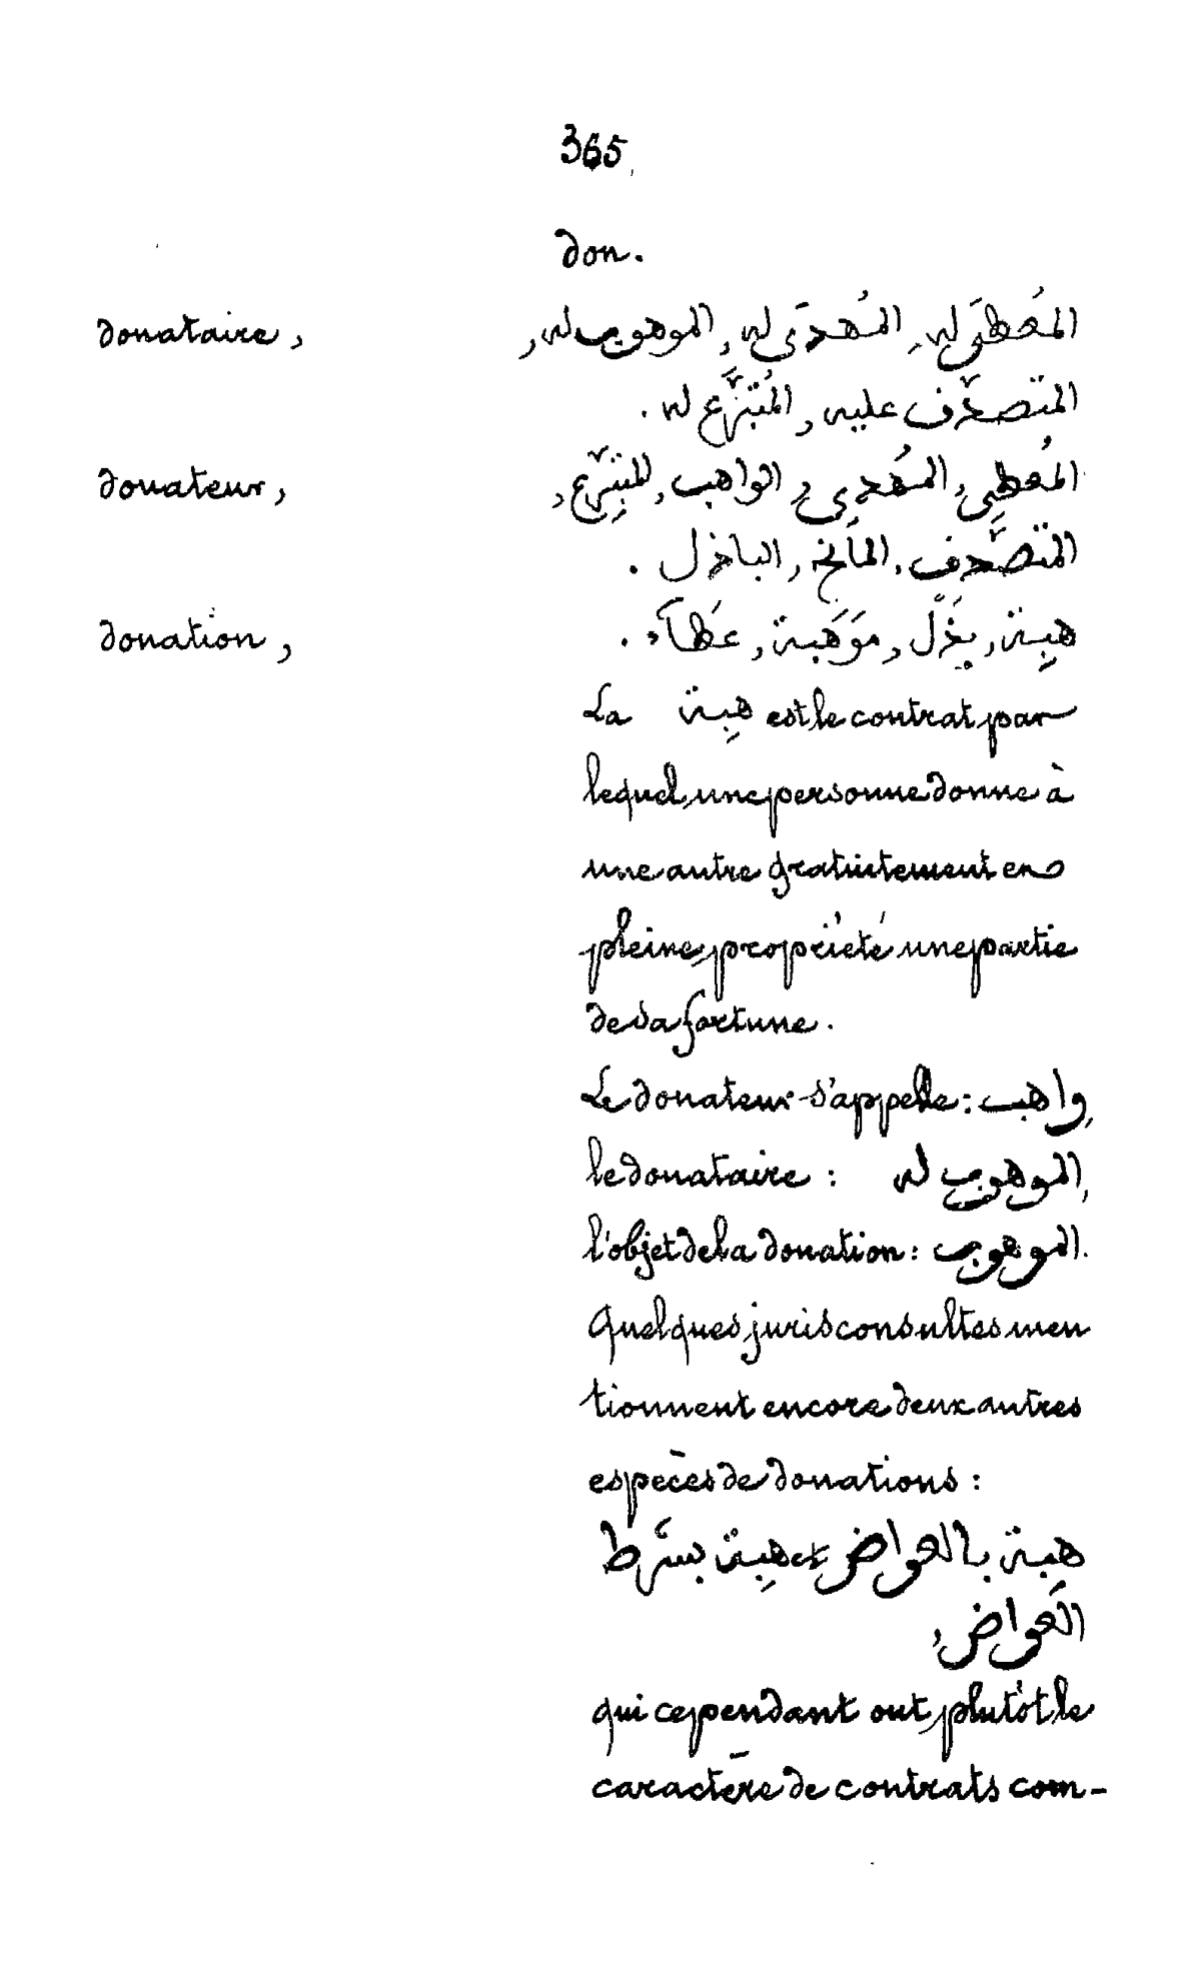 365
don.
donataire, المُعطَى له, المُهدَى له, الموهوب له,
المتصدَّف عليه, المُتبَرَّع له.
donateur, المُعطِي, المُهدِي, الواهب, المتبرِّع,
المتصَّدف, المانح, الباذل.
donation, هِبة, بَذْل, مَوْهَبة, عَطَآء.
La هِبة est le contrat par
lequel une personne donne à
une autre gratuitement en
pleine propriété une partie
de sa fortune.
Le donateur s'appelle: واهب,
le donataire: الموهوب له,
l'objet de la donation: الموهوب.
Quelques jurisconsultes men
tionnent encore deux autres
espèces de donations:
هبة بالعواض et هِبة بشَرط
العَواض,
qui cependant ont plutôt le
caractère de contrats com-